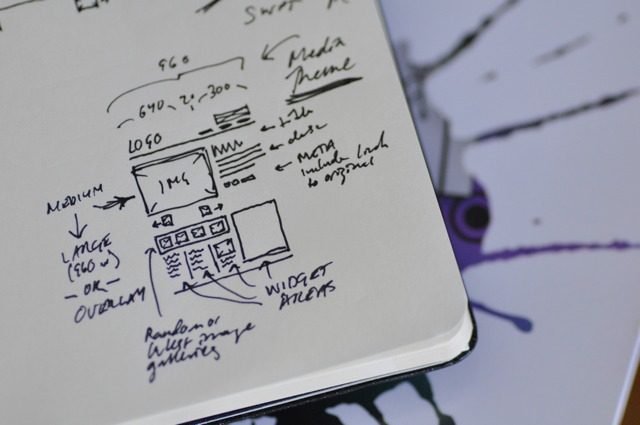 960
Media
Theme
640 20 300
LOGO
title
desc
META
include link
to original
IMG
MEDIUM
LARGE
(960 w)
— OR —
OVERLAY
WIDGET
AREAS
Random or
latest image
galleries